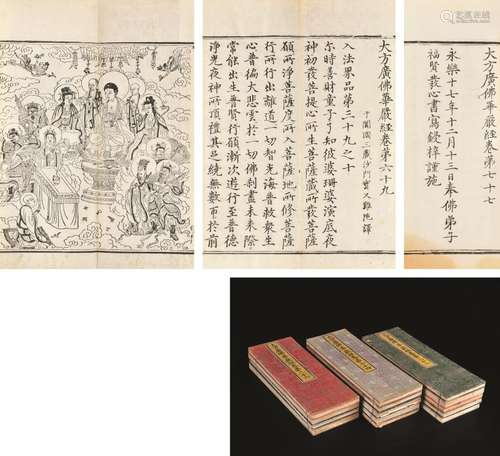 大方廣佛華嚴經卷第六十九
于闐國三藏沙門實叉難陀譯
入法界品第三十九之十
尒時善財童子了知彼婆珊婆演底夜
神初發菩提心所生菩薩藏所發菩薩
願所淨菩薩度所入菩薩地所修菩薩
行所行出離道一切智光海普救衆生
心普徧大悲雲於一切佛刹盡未來際
常能出生普賢行願漸次遊行至普德
淨光夜神所頂禮其足繞無數帀於前
大方廣佛華嚴經卷第七十七
永樂十七年十二月十三日奉佛弟子
福賢發心書寫鋟梓謹施